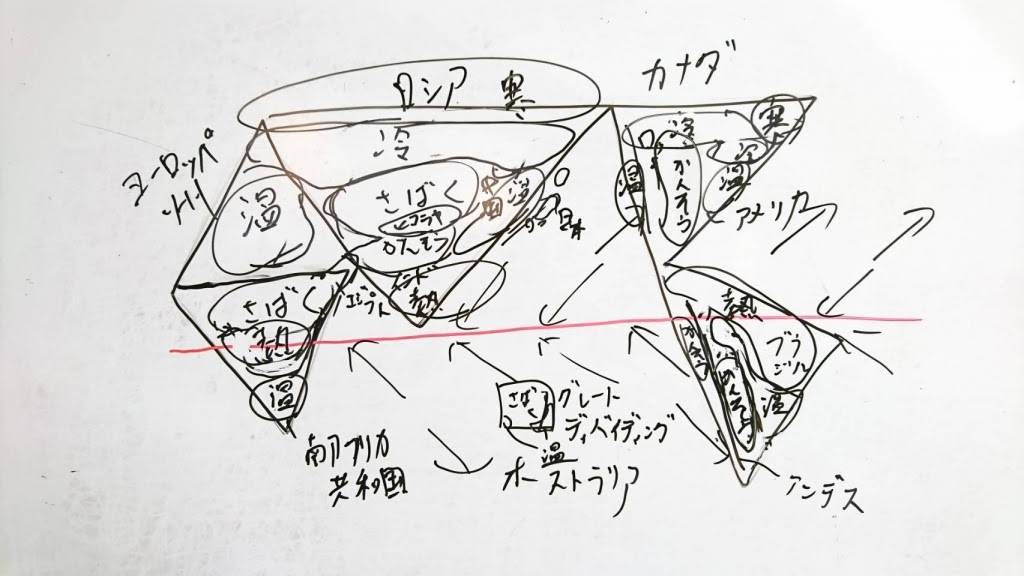 カナダ
ロシア 寒
寒
冷
冷
冷
ヨーロッパ
温
さばく
ヒマラヤ
かんそう
中国
温
日本
温
ロッキー
かんそう
温
アメリカ
さばく
熱
温
エジプト
インド
熱
熱
ブラジル
かんそう
温
さばく
グレート
ディバイディング
温
オーストラリア
南アフリカ
共和国
アンデス